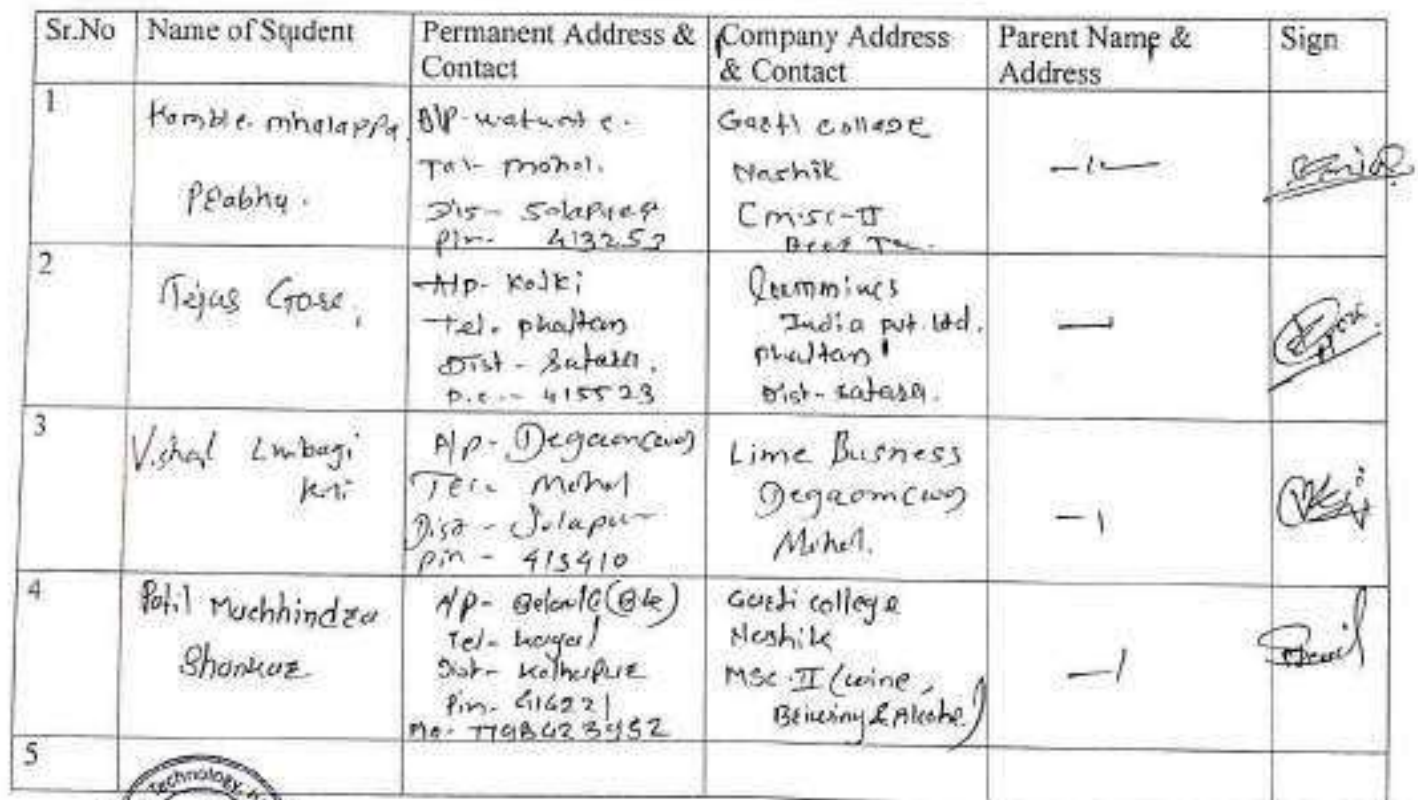 Sr.No Name of Student Permanent Address & Contact Company Address & Contact Parent Name & Address Sign
1
Kamble. mhalappa
Prabhu.
A/P-
Tal- Mohol.
Dis- Solapur
Pin- 413253
college
Nashik
(M.sc-II
2
Tejas Gore,
A/p- Kolki
Tal. phaltan
Dist - Satara.
415523
Cummines
India pvt. ltd.
phaltan
Dist- satara.
3
Vishal Limbaji
A/p- Degaon(wo)
Mohol
Dist - Solapur
pin - 413410
Lime Busness
Degaom(wo)
Mohol.
4
Patil Machhindra
Shankar
A/p-
Tel- kagal
Dist- Kolhapur
Pin- 416221
college
Nashik
MSc-II (wine,
Brewing & Alcohol)
5
Technology,